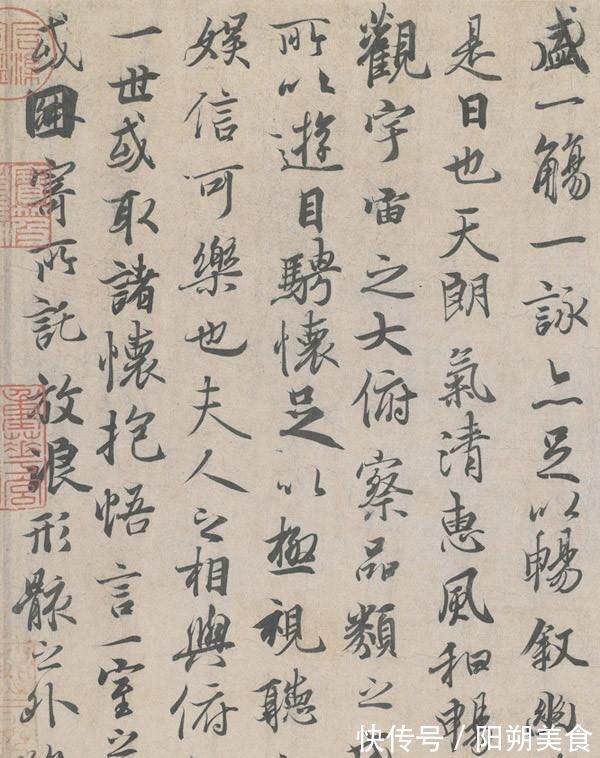 盛一觴一詠亦足以暢叙幽
是日也天朗氣清惠風和暢
觀宇宙之大俯察品類之
所以遊目騁懷足以極視聽
娛信可樂也夫人之相與俯
一世或取諸懷抱悟言一室之
或因寄所託放浪形骸之外
快传号/阳朔美食